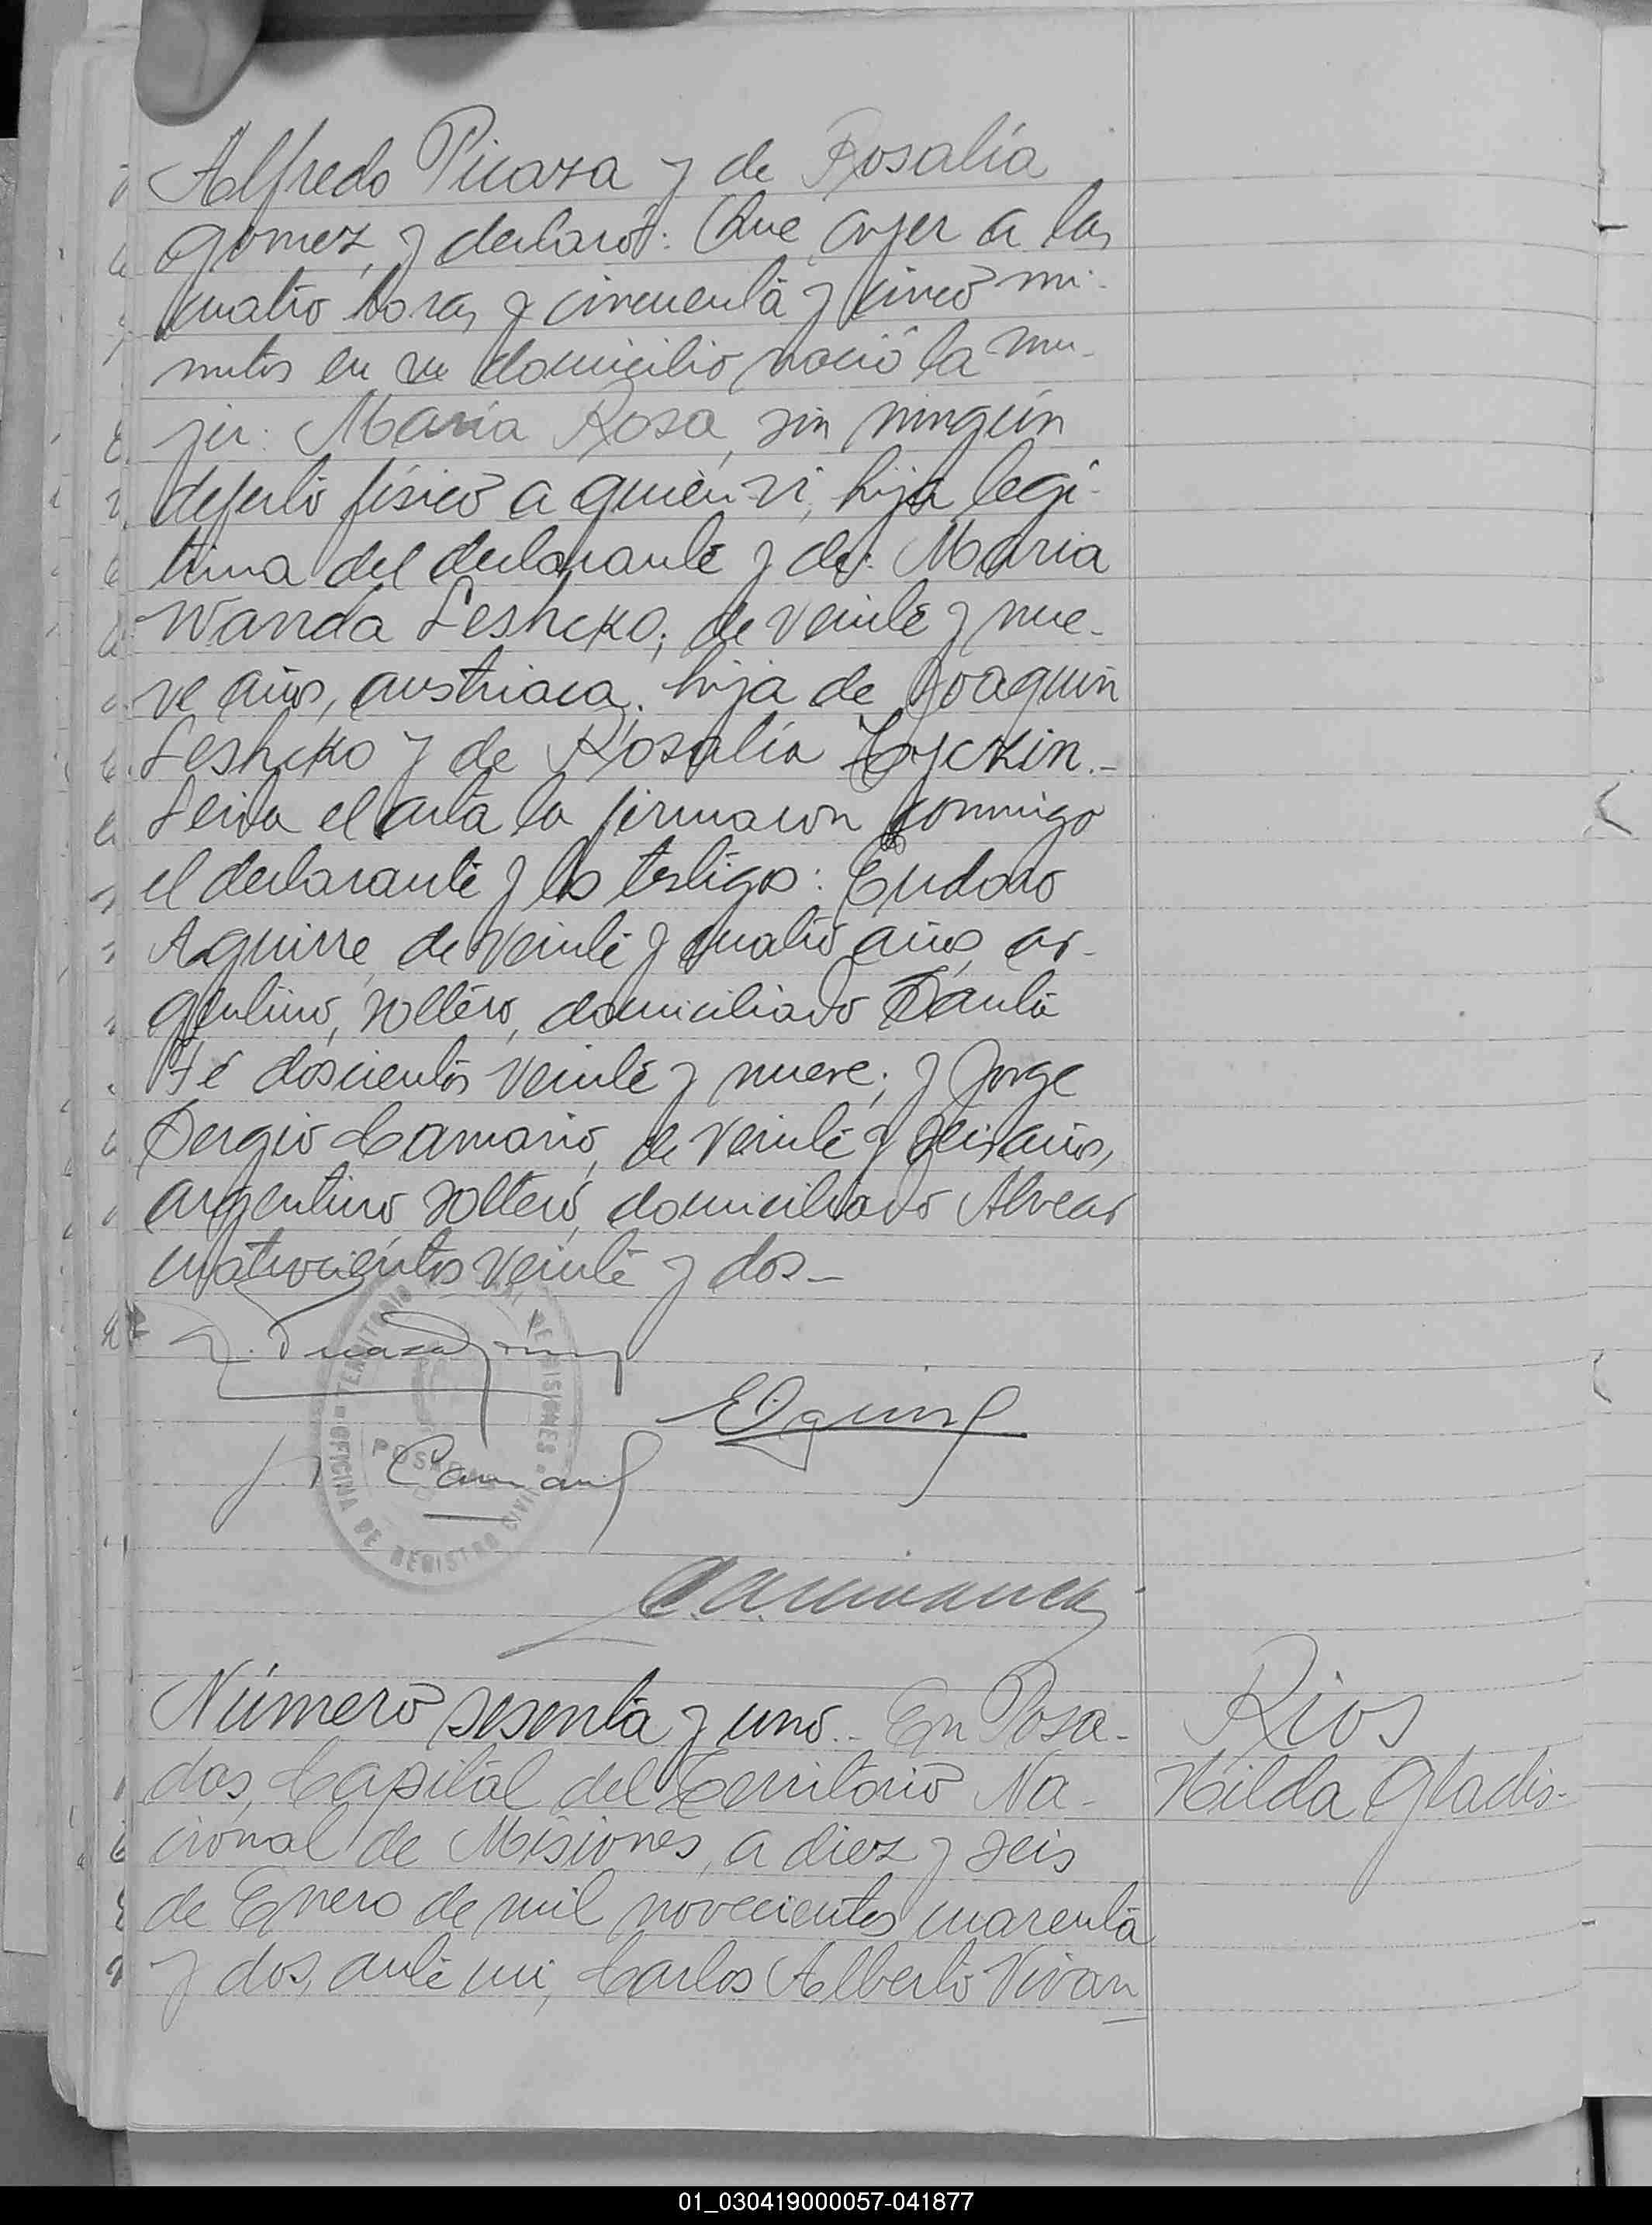 Alfredo Picaza y de Rosalía
Gomez, y declaró: Que ayer a las
cuatro horas y cincuenta y cinco mi-
nutos en su domicilio nació la mu-
jer: María Rosa, sin ningún
defecto físico a quien vi, hija legí-
tima del declarante y de: Maria
Wanda Leshcko; de veinte y nue-
ve años, austriaca, hija de Joaquin
Leshcko y de Rosalía
Leida el acta la firmaron conmigo
el declarante y los testigos: Eudoro
Aguirre, de veinte y cuatro años, ar-
gentino, soltero, domiciliado Santa
Fé doscientos veinte y nueve; y Jorge
Sergio Camario, de veinte y seis años,
argentino soltero, domiciliado Alvear
cuatrocientos veinte y dos-
TERRITORIO DE MISIONES
POSADAS
OFICINA DE REGISTRO CIVIL
Número sesenta y uno.- En Posa-
das, Capital del Territorio Na-
cional de Misiones, a diez y seis
de Enero de mil novecientos cuarenta
y dos, ante mi, Carlos Alberto Vivan
Rios
Hilda Gladis-
01_030419000057-041877